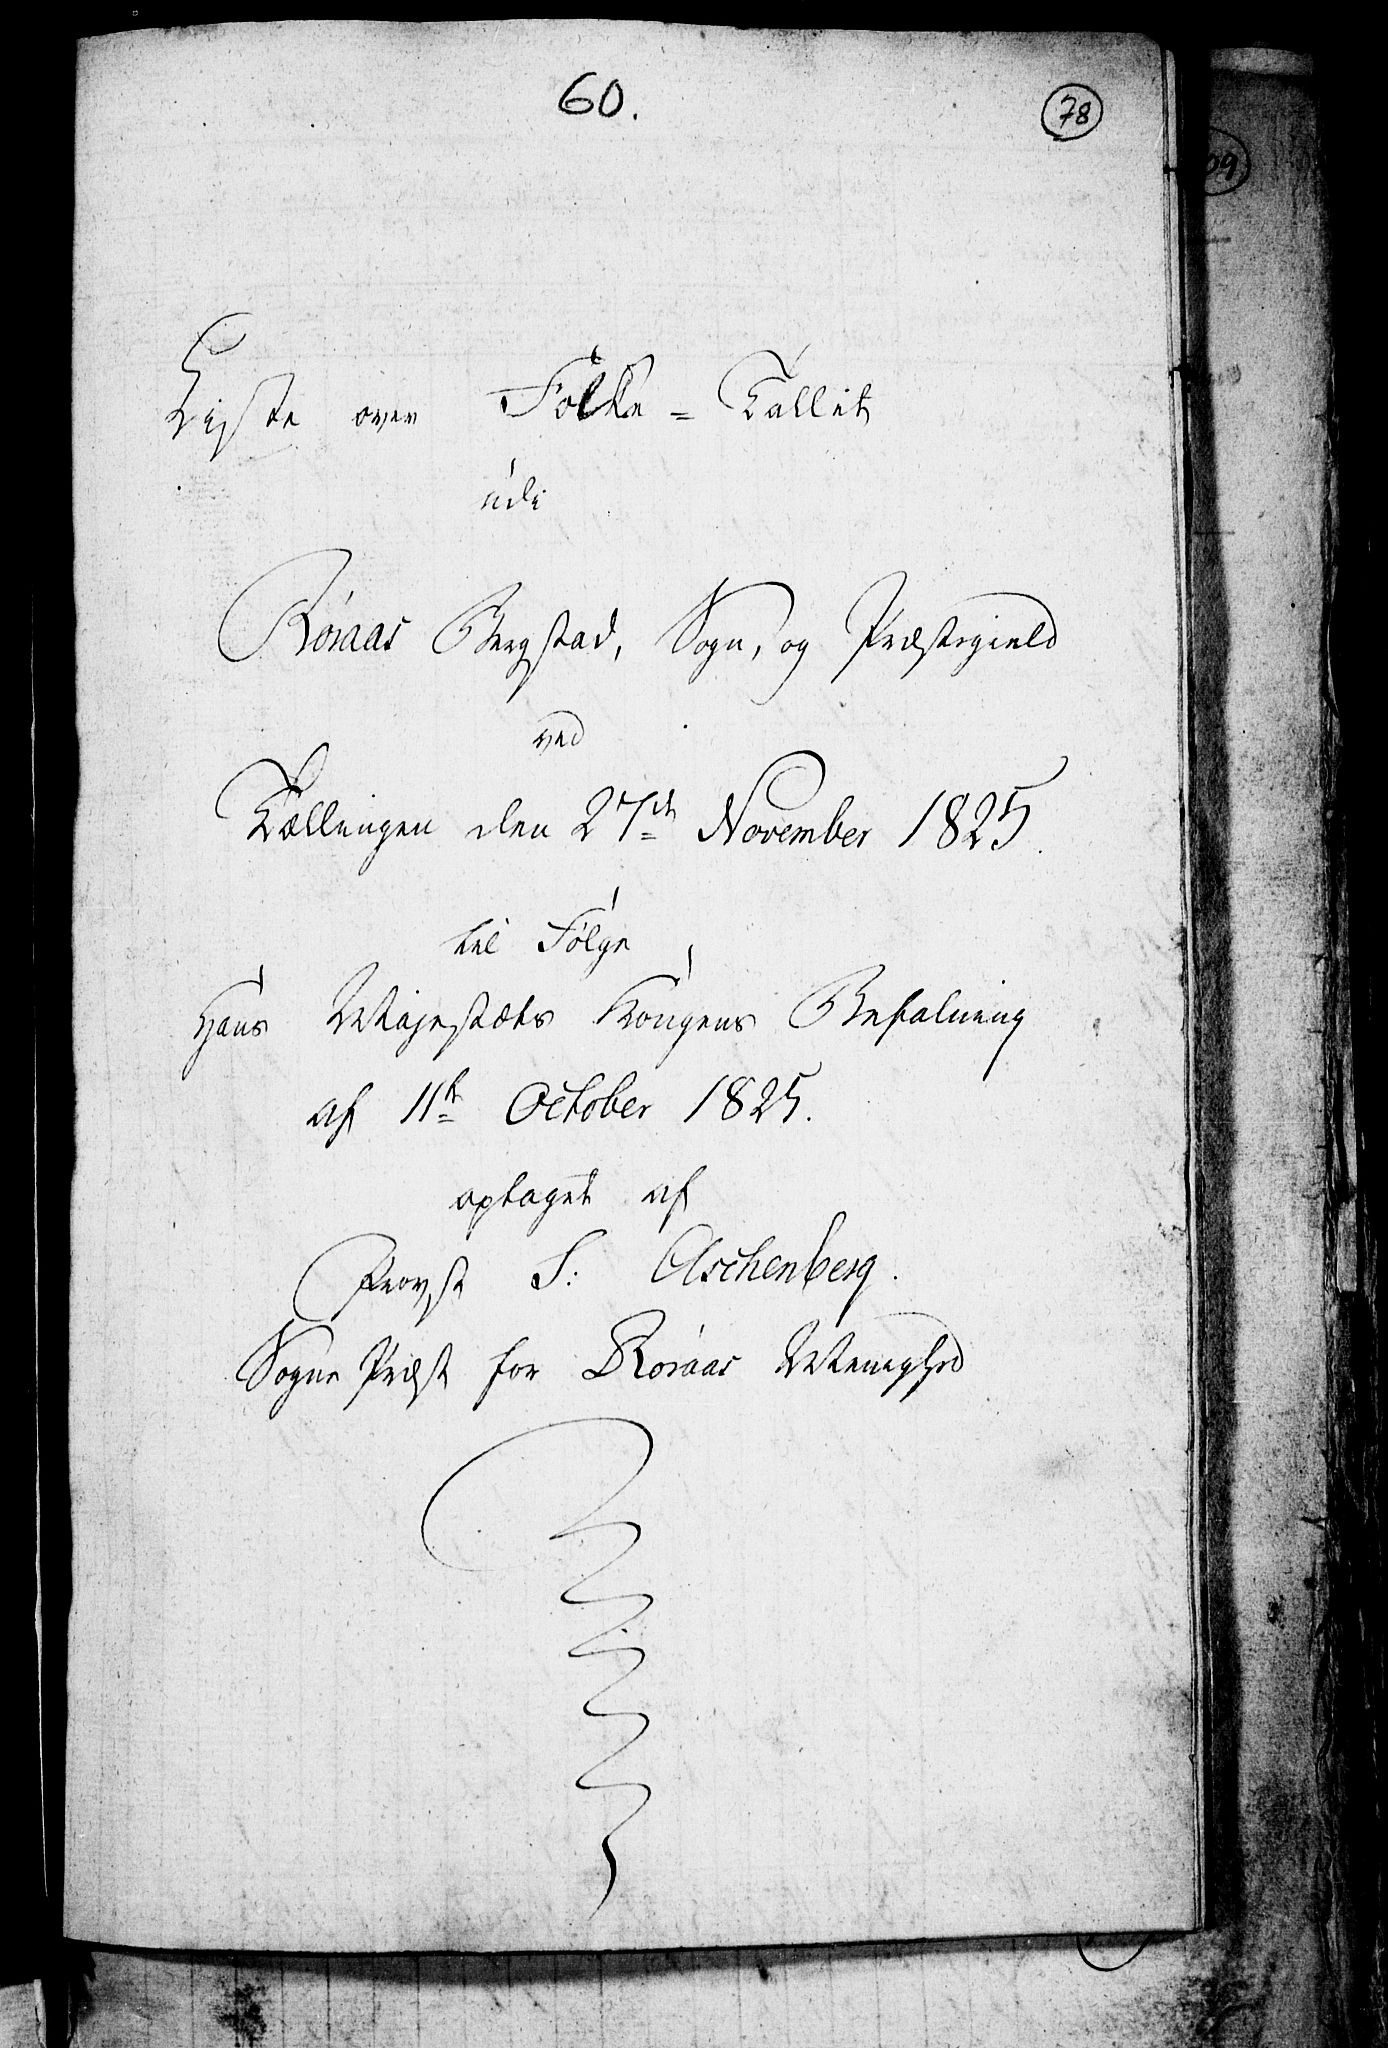 60.
78
09
Liste over Folke=Tallet
udi
Röraas Bergstad, Sogn, og Præstegield
ved
Tællingen den 27de November 1825.
til Følge
Hans Majestæts Kongens Befalning
af 11te October 1825.
optaget af
Provst S: Aschenberg.
Sogne Præst for Röraas Menighed